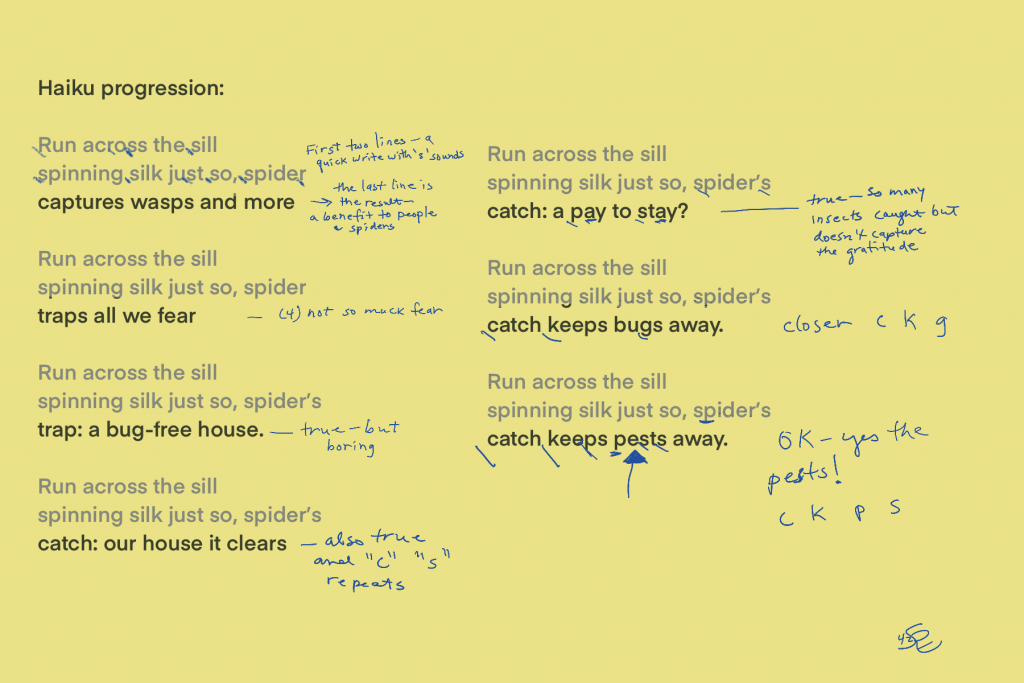 Haiku progression:
Run across the sill
spinning silk just so, spider
captures wasps and more
First two lines – a
quick write with 's' sounds
the last line is
→ the result –
a benefit to people
& spiders
Run across the sill
spinning silk just so, spider
traps all we fear
— (4) not so muck fear
Run across the sill
spinning silk just so, spider's
trap: a bug-free house.
— true – but
boring
Run across the sill
spinning silk just so, spider's
catch: our house it clears
— also true
and "c" "s"
repeats
Run across the sill
spinning silk just so, spider's
catch: a pay to stay?
true – so many
insects caught but
doesn't capture
the gratitude
Run across the sill
spinning silk just so, spider's
catch keeps bugs away.
closer c k g
Run across the sill
spinning silk just so, spider's
catch keeps pests away.
OK – yes the
pests!
c k p s